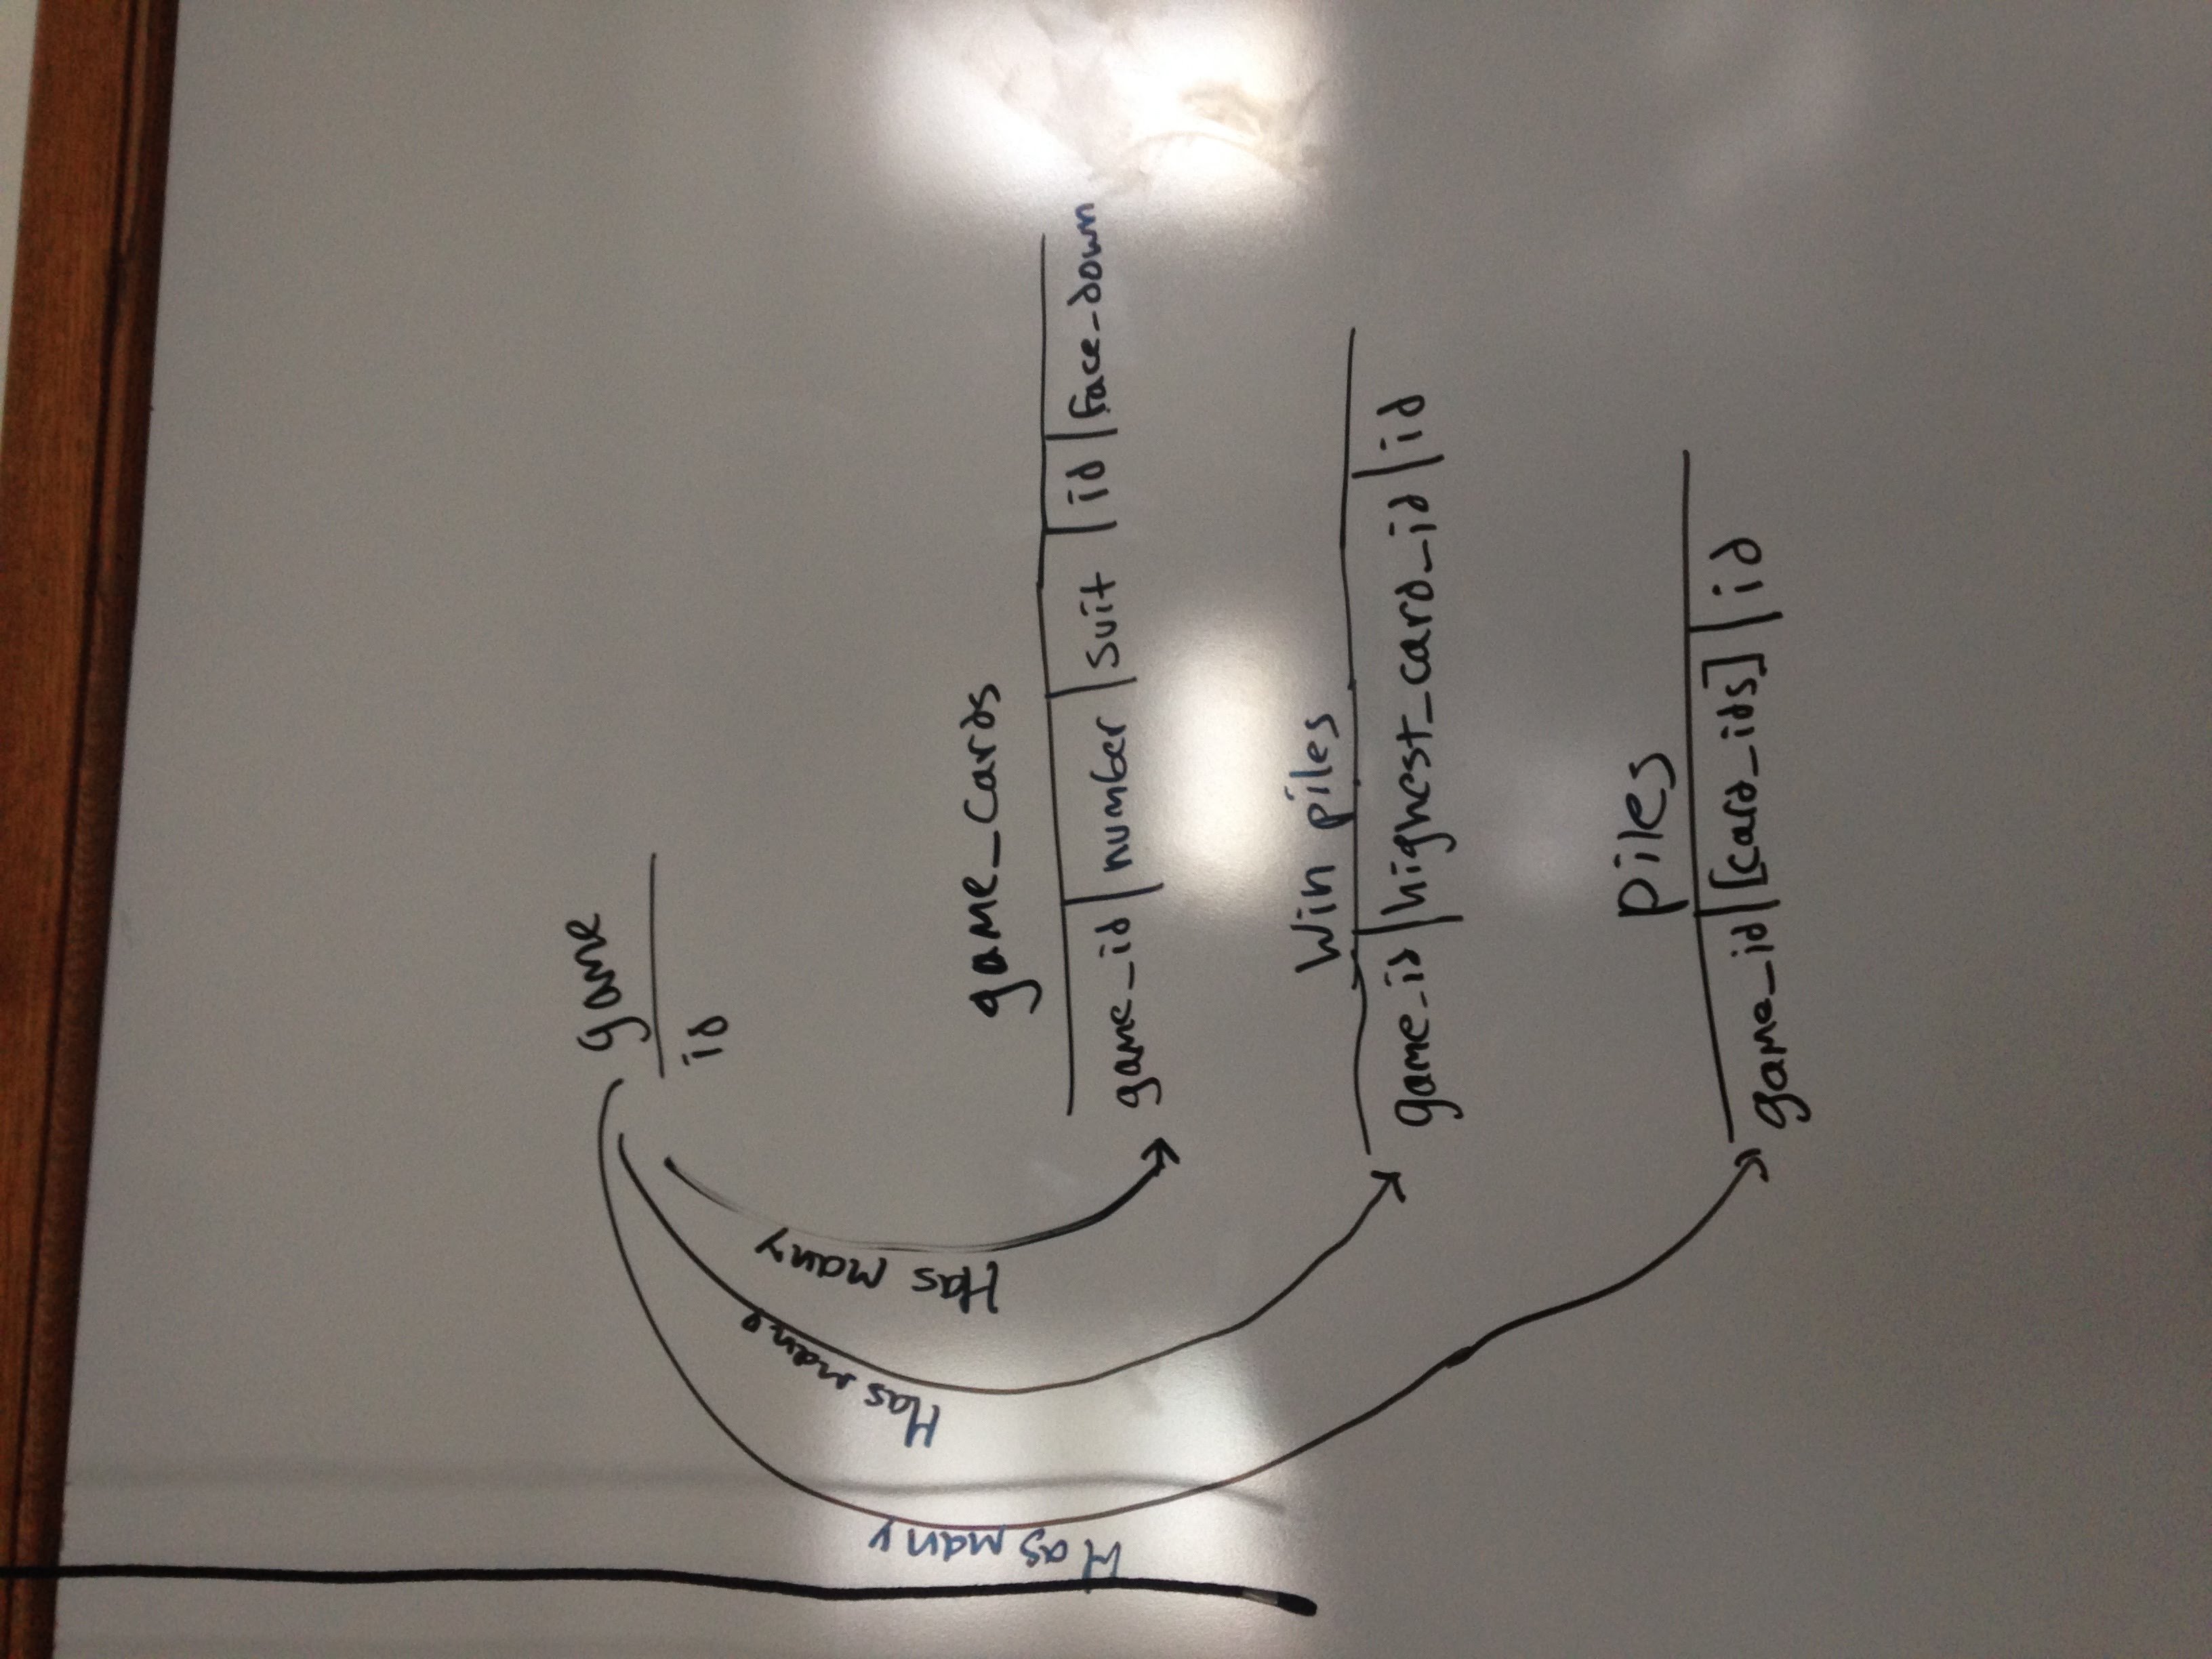 game
id
Has many
Has many
Has many
game_cards
game_id | number | suit | id | face_down
Win piles
game_id | highest_card_id | id
piles
game_id | [card_ids] | id